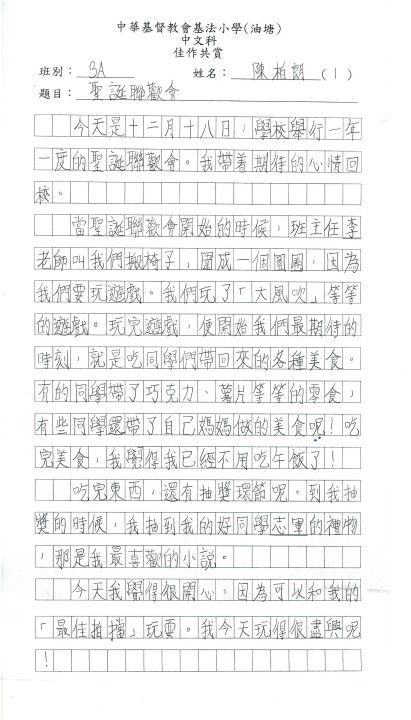 中華基督教會基法小學(油塘)
中文科
佳作共賞
班別：3A 姓名：陳柏朗(1)
題目：聖誕聯歡會
今天是十二月十八日，學校舉行一年
一度的聖誕聯歡會。我帶着期待的心情回
校。
當聖誕聯歡會開始的時候，班主任李
老師叫我們搬椅子，圍成一個圓圈，因為
我們要玩遊戲。我們玩了「大風吹」等等
的遊戲。玩完遊戲，便開始我們最期待的
時刻，就是吃同學們帶回來的各種美食。
有的同學帶了巧克力、薯片等等的零食，
有些同學還帶了自己媽媽做的美食呢！吃
完美食，我覺得我已經不用吃午飯了！
吃完東西，還有抽獎環節呢。到我抽
獎的時候，我抽到我的好同學志軍的禮物
，那是我最喜歡的小說。
今天我覺得很開心，因為可以和我的
「最佳拍擋」玩耍。我今天玩得很盡興呢
！